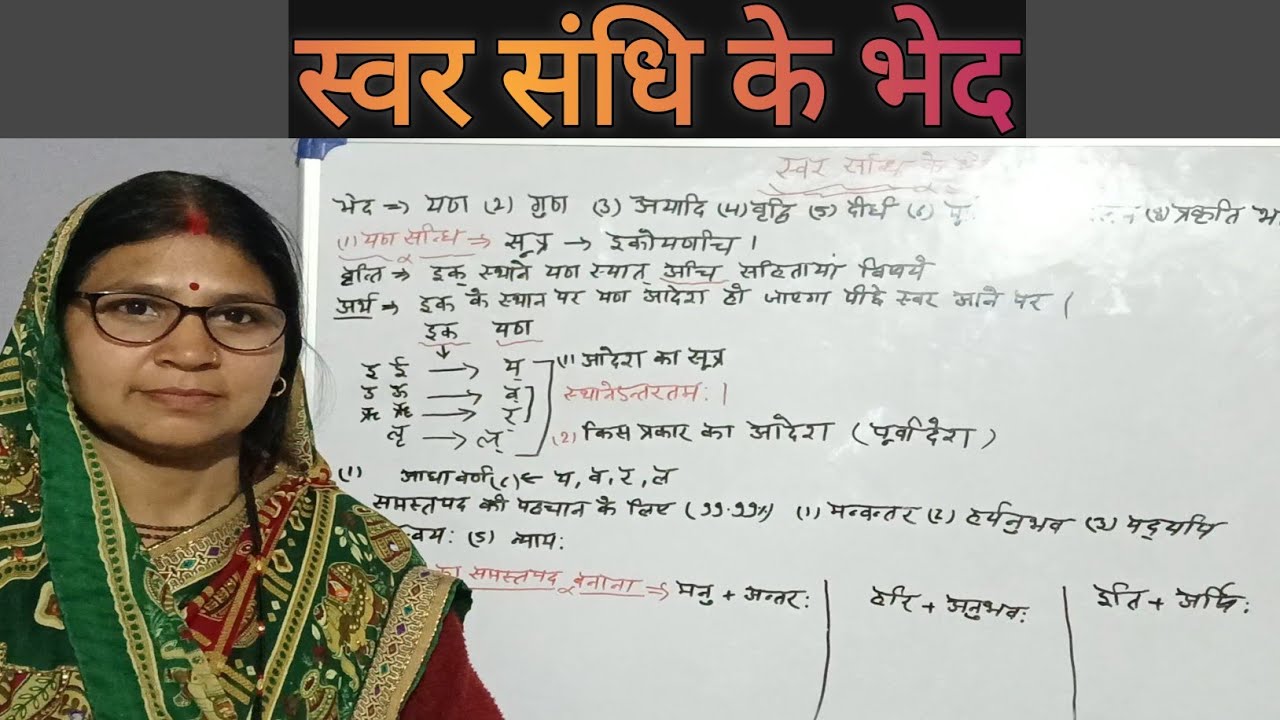 स्वर संधि के भेद
स्वर सन्धि के
भेद => यण (2) गुण (3) अयादि (4) वृद्धि (5) दीर्घ (6) (8) प्रकृति
(1) यण सन्धि => सूत्र → इकोयणचि ।
वृत्ति => इक् स्थाने यण स्यात् अचि संहितायां विषये
अर्थ => इक के स्थान पर यण आदेश हो जाएगा पीछे स्वर आने पर ।
इक यण
इ ई → य् (1) आदेश का सूत्र
उ ऊ → व्
स्थानेऽन्तरतमः ।
ऋ ॠ → र्
लृ → ल् (2) किस प्रकार का आदेश (पूर्वादेश)
(1) आधावर्ण ← य, व, र, ल
समस्तपद की पहचान के लिए (99.99%) (1) मन्वन्तर (2) हर्यनुभव (3) यद्यपि
(5) न्यायः
का समस्तपद बनाना => मनु + अन्तरः हरि + अनुभवः इति +